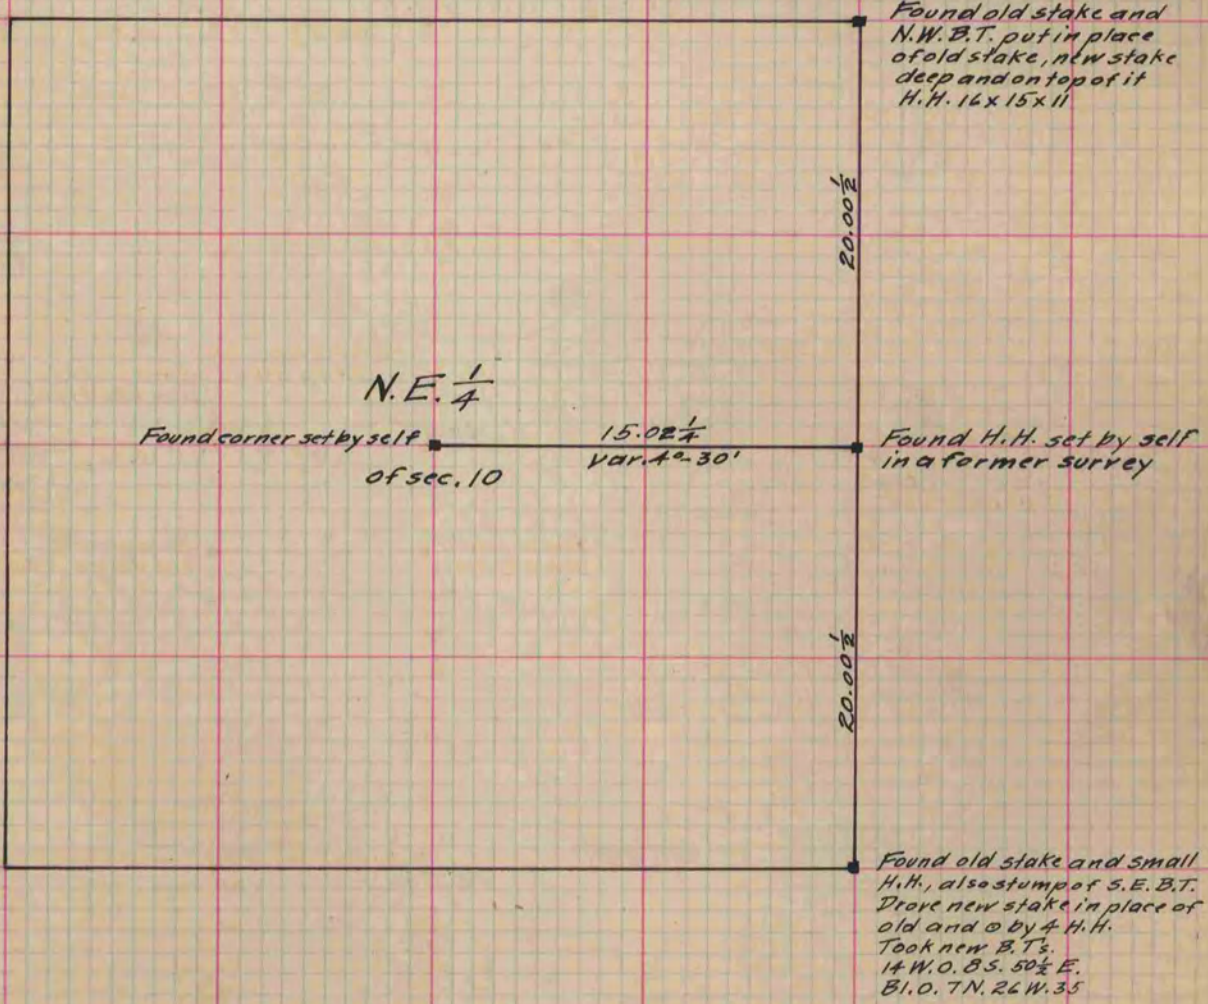 Found old stake and
N.W.B.T. put in place
of old stake, new stake
deep and on top of it
H.H. 16 x 15 x 11
20.00 1/2
N.E. 1/4
Found corner set by self
of sec. 10
15.02 1/4
Var. 4°-30'
Found H.H. set by self
in a former survey
20.00 1/2
Found old stake and small
H.H., also stump of S.E.B.T.
Drove new stake in place of
old and ⊙ by 4 H.H.
Took new B.T's.
14 W.O. 8 S. 50 1/2 E.
Bl.O. 7 N. 26 W. 35